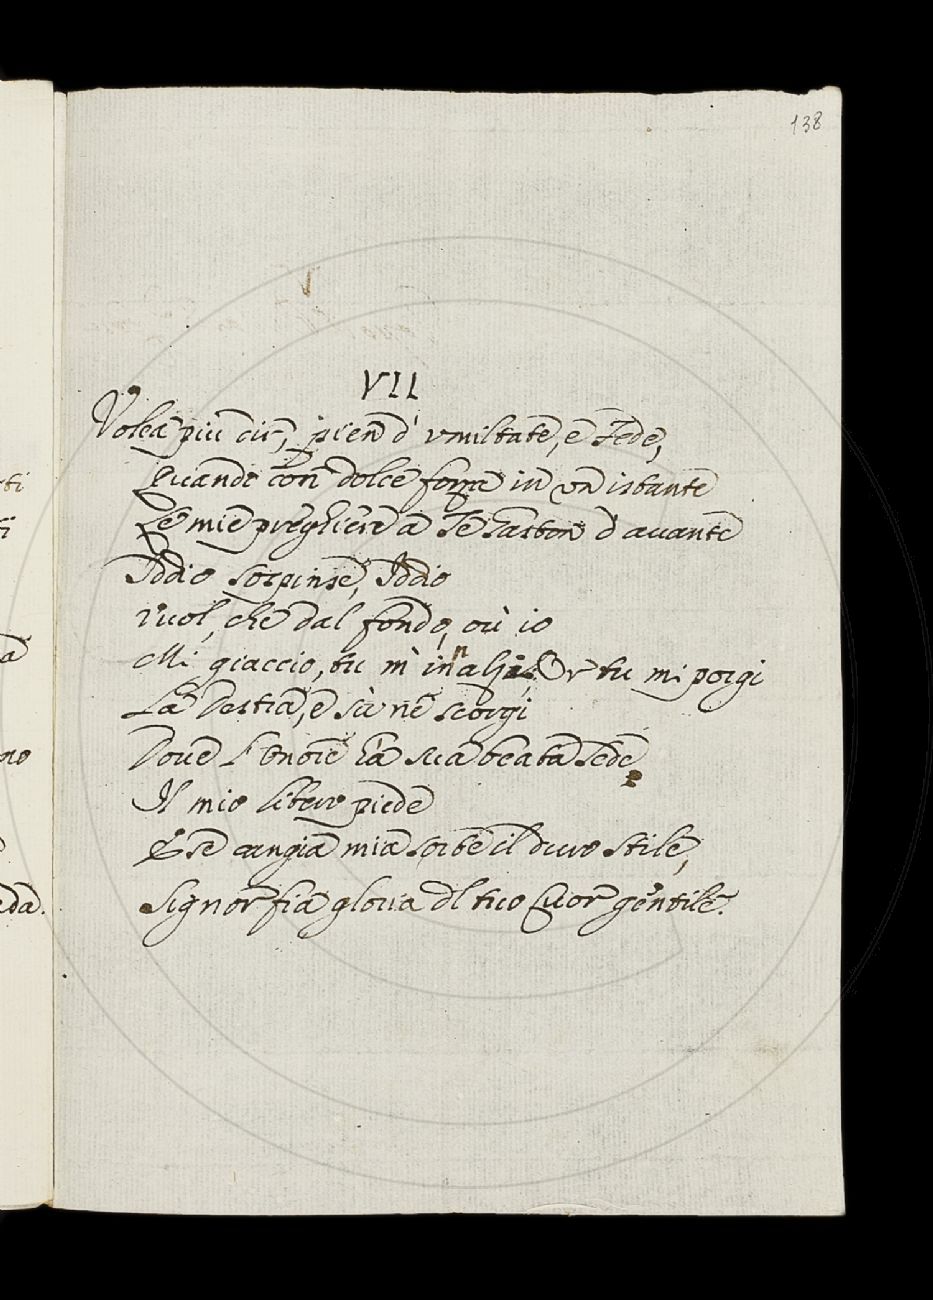 138
VII
Volea piu dir, pien d' vmiltate, e Fede,
Quando con dolce forza in vn istante
Le mie preghiere a Te d' auante
Iddio sospinse, Iddio
vuol, che dal fondo, où io
Mi giaccio, tu m' innalzi, Or tu mi porgi
La Destra, e sù ne scorgi
Doue l' onore hà sua beata Sede
Il mio libero piede
E se cangia mia sorte il duro stile,
Signor fia gloria dl tuo Cuor gentile.